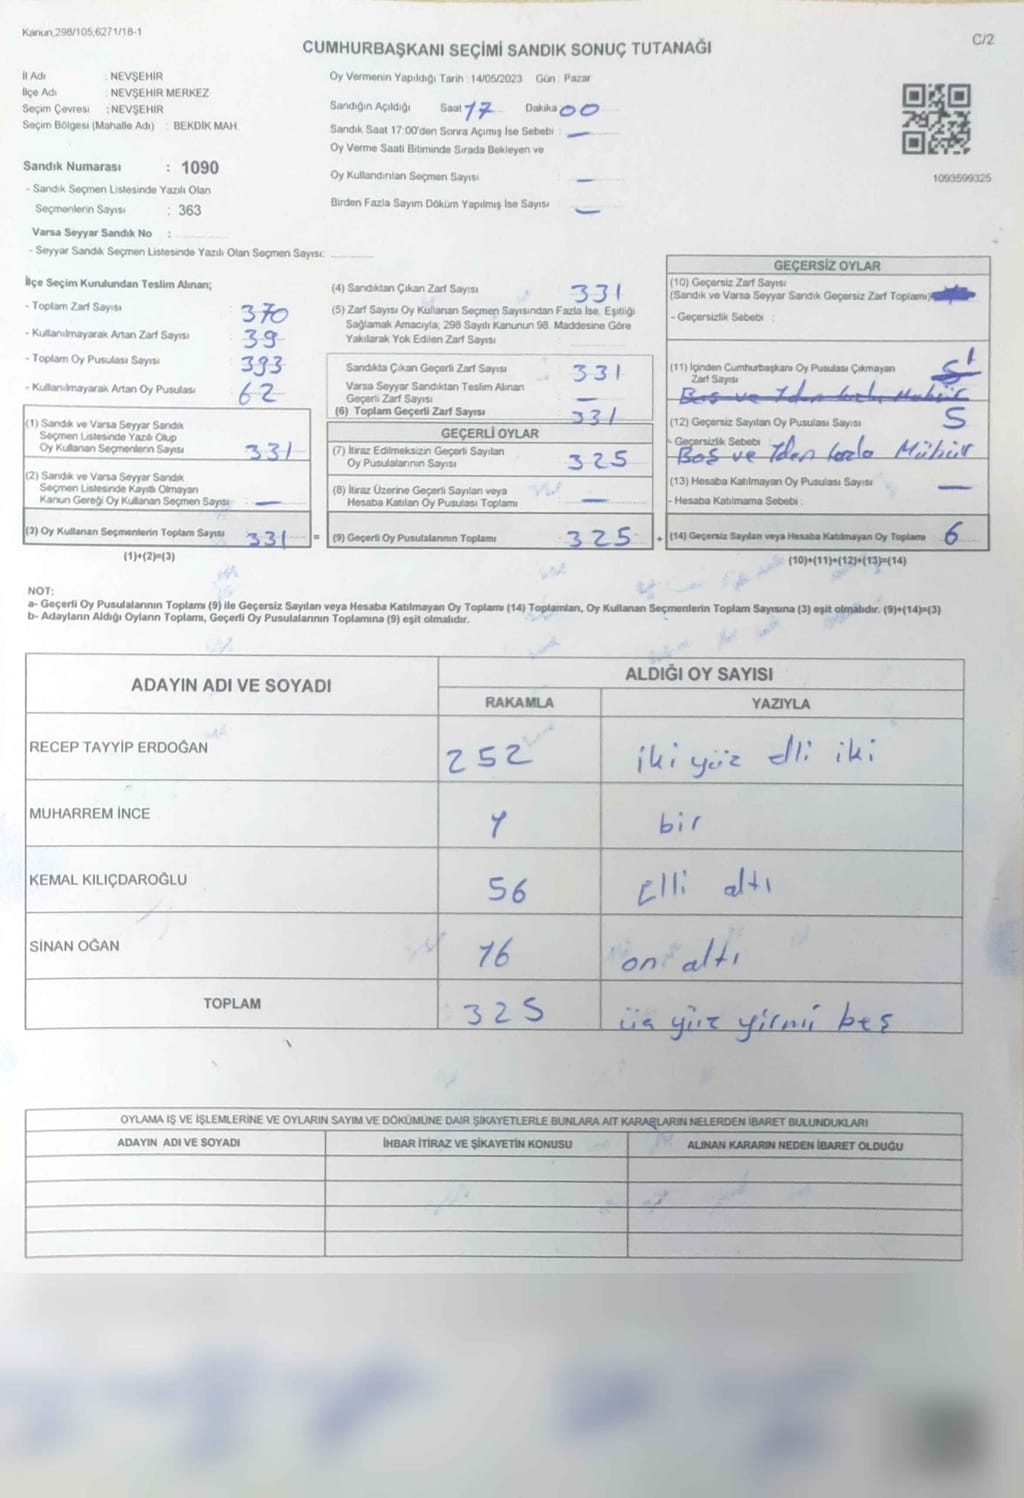 Kanun,298/105,6271/18-1
C/2
CUMHURBAŞKANI SEÇİMİ SANDIK SONUÇ TUTANAĞI
İl Adı : NEVŞEHİR
İlçe Adı : NEVŞEHİR MERKEZ
Seçim Çevresi : NEVŞEHİR
Seçim Bölgesi (Mahalle Adı) : BEKDİK MAH.
Sandık Numarası : 1090
- Sandık Seçmen Listesinde Yazılı Olan
Seçmenlerin Sayısı : 363
Varsa Seyyar Sandık No :
- Seyyar Sandık Seçmen Listesinde Yazılı Olan Seçmen Sayısı:
Oy Vermenin Yapıldığı Tarih : 14/05/2023 Gün : Pazar
Sandığın Açıldığı Saat 17 Dakika 00
Sandık Saat 17:00'den Sonra Açımış İse Sebebi : —
Oy Verme Saati Bitiminde Sırada Bekleyen ve
Oy Kullandırılan Seçmen Sayısı —
Birden Fazla Sayım Döküm Yapılmış İse Sayısı —
1093599325
İlçe Seçim Kurulundan Teslim Alınan;
- Toplam Zarf Sayısı : 370
- Kullanılmayarak Artan Zarf Sayısı : 39
- Toplam Oy Pusulası Sayısı : 393
- Kullanılmayarak Artan Oy Pusulası : 62
(1) Sandık ve Varsa Seyyar Sandık
Seçmen Listesinde Yazılı Olup
Oy Kullanan Seçmenlerin Sayısı : 331
(2) Sandık ve Varsa Seyyar Sandık
Seçmen Listesinde Kayıtlı Olmayan
Kanun Gereği Oy Kullanan Seçmen Sayısı : —
(3) Oy Kullanan Seçmenlerin Toplam Sayısı 331 =
(1)+(2)=(3)
(4) Sandıktan Çıkan Zarf Sayısı 331
(5) Zarf Sayısı Oy Kullanan Seçmen Sayısından Fazla İse, Eşitliği
Sağlamak Amacıyla; 298 Sayılı Kanunun 98. Maddesine Göre
Yakılarak Yok Edilen Zarf Sayısı
Sandıkta Çıkan Geçerli Zarf Sayısı 331
Varsa Seyyar Sandıktan Teslim Alınan
Geçerli Zarf Sayısı —
(6) Toplam Geçerli Zarf Sayısı 331
GEÇERLİ OYLAR
(7) İtiraz Edilmeksizin Geçerli Sayılan
Oy Pusulalarının Sayısı 325
(8) İtiraz Üzerine Geçerli Sayılan veya
Hesaba Katılan Oy Pusulası Toplamı —
(9) Geçerli Oy Pusulalarının Toplamı 325 +
GEÇERSİZ OYLAR
(10) Geçersiz Zarf Sayısı
(Sandık ve Varsa Seyyar Sandık Geçersiz Zarf Toplamı)
- Geçersizlik Sebebi :
(11) İçinden Cumhurbaşkanı Oy Pusulası Çıkmayan
Zarf Sayısı 5 1
Boş ve 1den fazla Mühür
(12) Geçersiz Sayılan Oy Pusulası Sayısı 5
- Geçersizlik Sebebi :
Boş ve 1den fazla Mühür
(13) Hesaba Katılmayan Oy Pusulası Sayısı —
- Hesaba Katılmama Sebebi :
(14) Geçersiz Sayılan veya Hesaba Katılmayan Oy Toplamı 6
(10)+(11)+(12)+(13)=(14)
NOT:
a- Geçerli Oy Pusulalarının Toplamı (9) ile Geçersiz Sayılan veya Hesaba Katılmayan Oy Toplamı (14) Toplamları, Oy Kullanan Seçmenlerin Toplam Sayısına (3) eşit olmalıdır. (9)+(14)=(3)
b- Adayların Aldığı Oyların Toplamı, Geçerli Oy Pusulalarının Toplamına (9) eşit olmalıdır.
ADAYIN ADI VE SOYADI ALDIĞI OY SAYISI
RAKAMLA YAZIYLA
RECEP TAYYİP ERDOĞAN 252 iki yüz elli iki
MUHARREM İNCE 1 bir
KEMAL KILIÇDAROĞLU 56 Elli altı
SİNAN OĞAN 16 on altı
TOPLAM 325 üç yüz yirmi beş
OYLAMA İŞ VE İŞLEMLERİNE VE OYLARIN SAYIM VE DÖKÜMÜNE DAİR ŞİKAYETLERLE BUNLARA AİT KARARLARIN NELERDEN İBARET BULUNDUKLARI
ADAYIN ADI VE SOYADI İHBAR İTİRAZ VE ŞİKAYETİN KONUSU ALINAN KARARIN NEDEN İBARET OLDUĞU